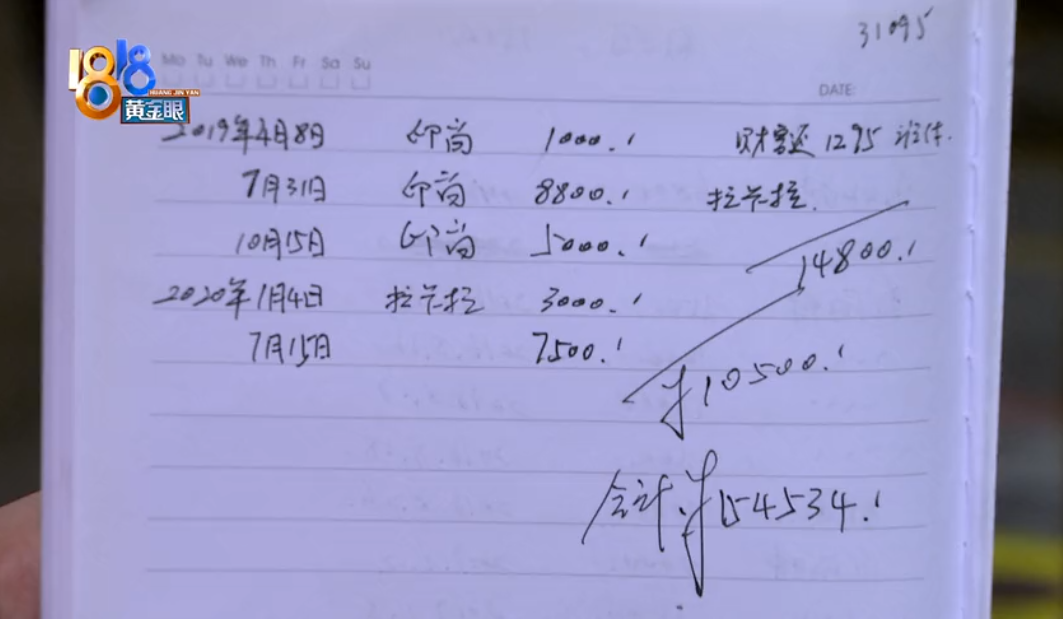 31095
1818
HUANG JIN YAN
黄金眼
Mo Tu We Th Fr Sa Su
DATE:
2019年4月8日 印尚 1000.! 财富还1295
7月31日 印尚 8800.! 拉卡拉.
10月15日 印尚 5000.!
14800.!
2020年1月4日 拉卡拉 3000.!
7月15日 7500.!
¥10500.!
合计.¥154534.!